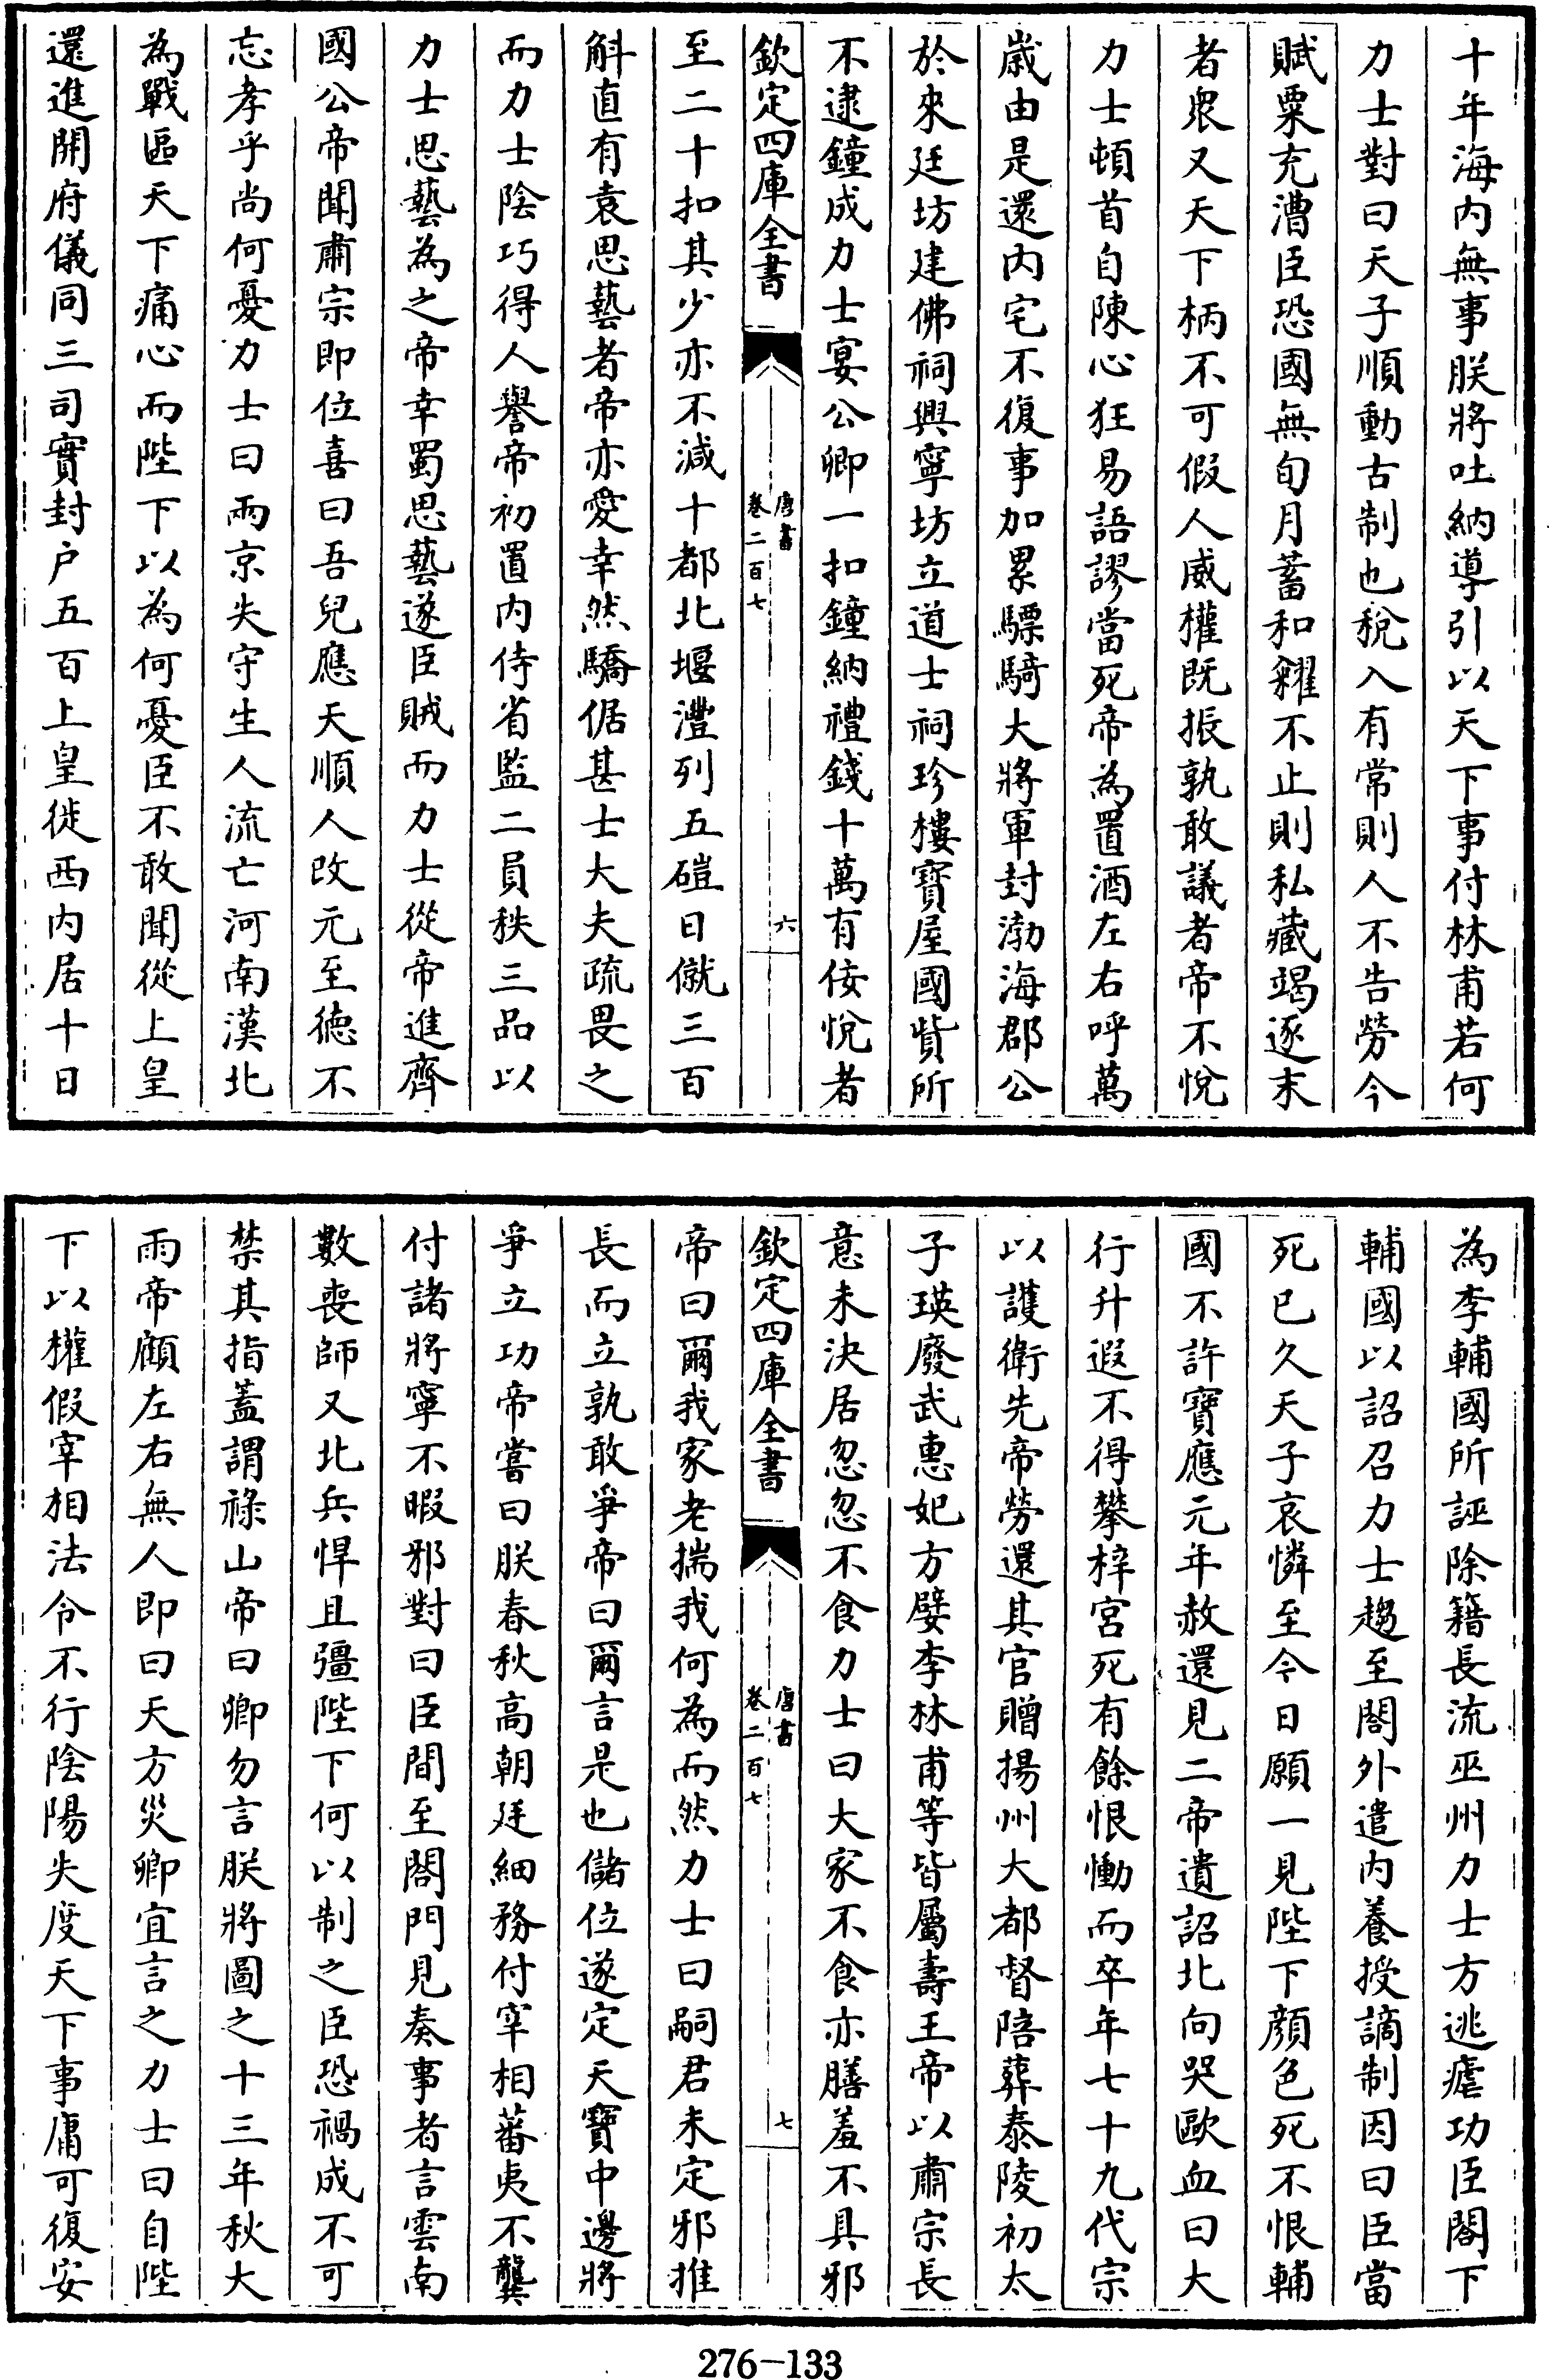 十年海内無事朕將吐納導引以天下事付林甫若何
力士對曰天子順動古制也稅入有常則人不告勞今
賦粟充漕臣恐國無旬月蓄和糴不止則私藏竭逐末
者衆又天下柄不可假人威權既振孰敢議者帝不悅
力士頓首自陳心狂易語謬當死帝為置酒左右呼萬
歲由是還内宅不復事加累驃騎大將軍封渤海郡公
於來廷坊建佛祠興寧坊立道士祠珍樓寶屋國貲所
不逮鐘成力士宴公卿一扣鐘納禮錢十萬有佞悅者
欽定四庫全書
唐書
卷二百七
六
至二十扣其少亦不減十都北堰灃列五磑日僦三百
斛直有袁思藝者帝亦愛幸然驕倨甚士大夫疏畏之
而力士陰巧得人譽帝初置内侍省監二員秩三品以
力士思藝為之帝幸蜀思藝遂臣賊而力士從帝進齊
國公帝聞肅宗即位喜曰吾兒應天順人改元至德不
忘孝乎尚何憂力士曰兩京失守生人流亡河南漢北
為戰區天下痛心而陛下以為何憂臣不敢聞從上皇
還進開府儀同三司實封户五百上皇徙西内居十日
為李輔國所誣除籍長流巫州力士方逃瘧功臣閣下
輔國以詔召力士趨至閣外遣内養授謫制因曰臣當
死已久天子哀憐至今日願一見陛下顔色死不恨輔
國不許寶應元年赦還見二帝遺詔北向哭歐血曰大
行升遐不得攀梓宮死有餘恨慟而卒年七十九代宗
以護衛先帝勞還其官贈揚州大都督陪葬泰陵初太
子瑛廢武惠妃方嬖李林甫等皆屬壽王帝以肅宗長
意未決居忽忽不食力士曰大家不食亦膳羞不具邪
欽定四庫全書
唐書
卷二百七
七
帝曰爾我家老揣我何為而然力士曰嗣君未定邪推
長而立孰敢爭帝曰爾言是也儲位遂定天寶中邊將
爭立功帝嘗曰朕春秋高朝廷細務付宰相蕃夷不龔
付諸將寧不暇邪對曰臣間至閤門見奏事者言雲南
數喪師又北兵悍且彊陛下何以制之臣恐禍成不可
禁其指蓋謂祿山帝曰卿勿言朕將圖之十三年秋大
雨帝顧左右無人即曰天方災卿宜言之力士曰自陛
下以權假宰相法令不行陰陽失度天下事庸可復安
276-133